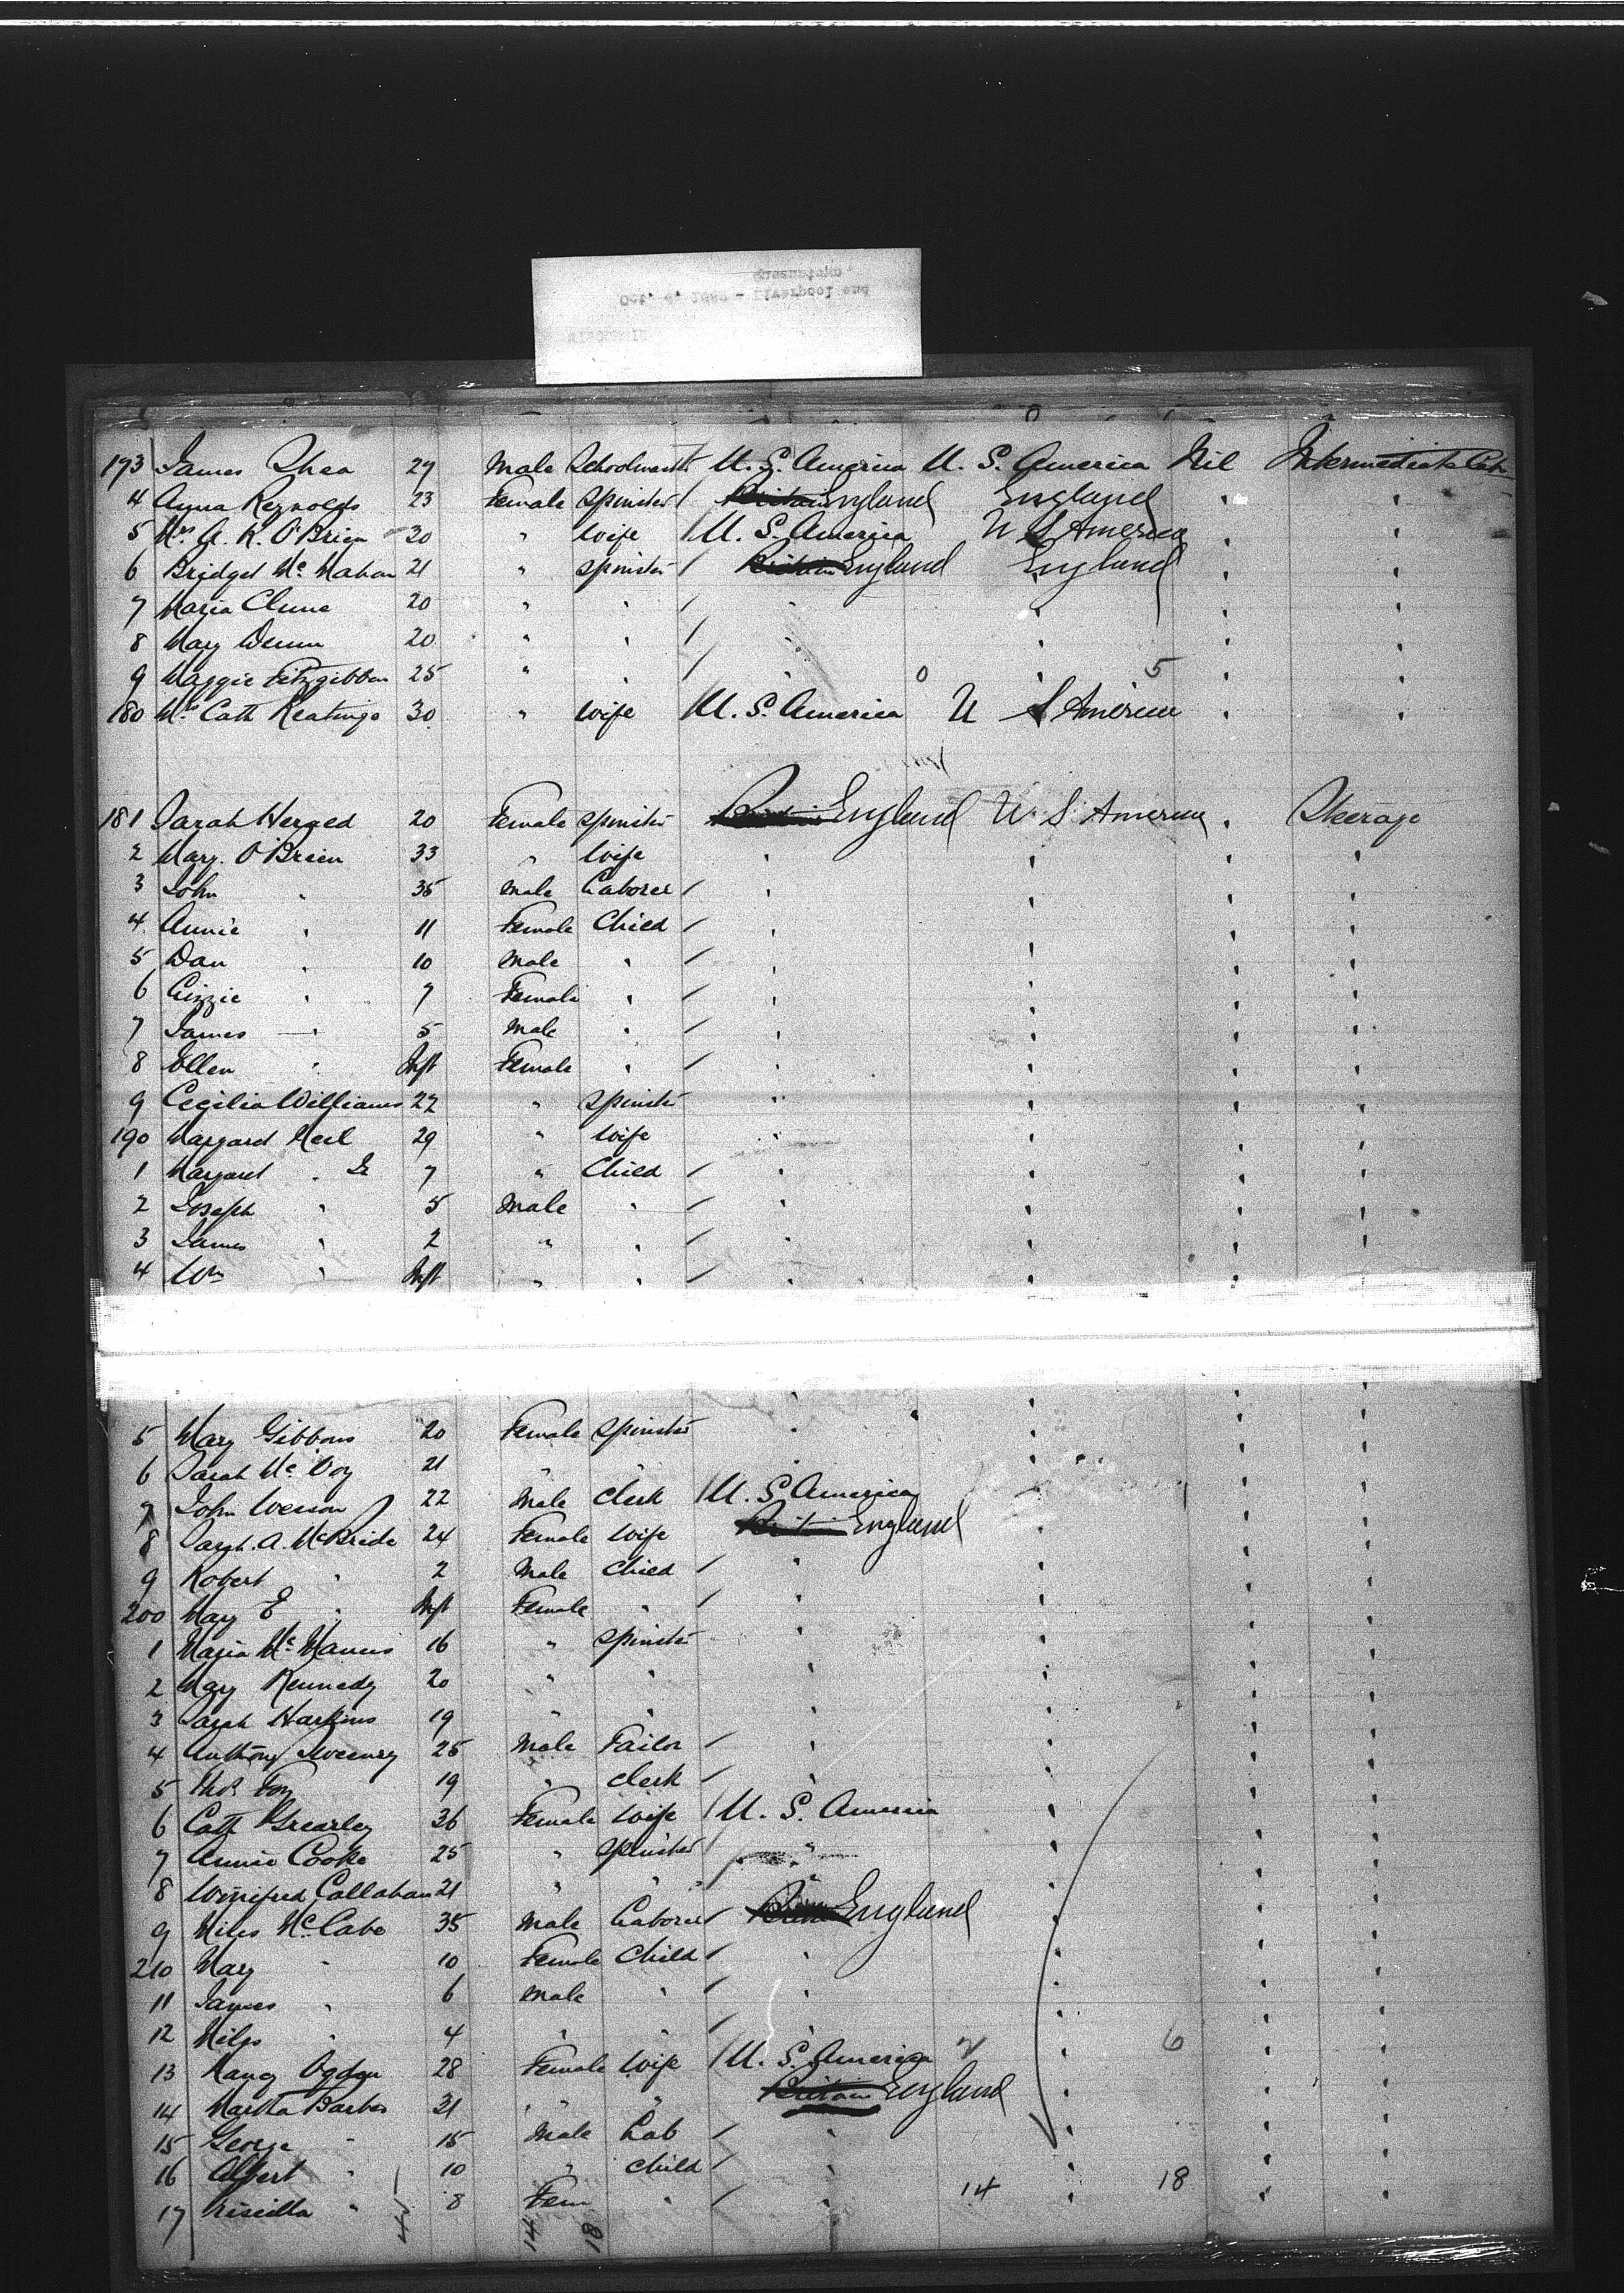 173 James Shea 29 Male Schoolmaster U. S. America U. S. America Nil Intermediate Cab
4 Anna Reynolds 23 Female Spinster / Britain England England " "
5 Mrs A. K. O'Brien 30 " Wife / U. S. America U S America " "
6 Bridget Mc Mahon 21 " Spinster / Britain England England " "
7 Maria Clune 20 " " / " " " "
8 Mary Dunn 20 " " / " " " "
9 Maggie Fitzgibbon 25 " " / " 0 " 5 " "
180 Mrs Cath Keatinge 30 " Wife / U. S. America U S America " "
181 Sarah 20 Female Spinster England U S America " Steerage
2 Mary O'Brien 33 " Wife " " " "
3 John " 35 Male Laborer / " " " "
4 Annie " 11 Female Child / " " " "
5 Dan " 10 Male " / " " " "
6 Lizzie " 7 Female " / " " " "
7 James " 5 Male " / " " " "
8 Ellen " Inft Female " / " " " "
9 Cecilia Williams 22 " Spinster " " " "
190 Margaret Neil 29 " Wife " " " "
1 Margaret " Jr 7 " Child / " " " "
2 Joseph " 5 Male " / " " " "
3 James " 2 " " / " " " "
4 Wm " Inft " " / " " " "
5 Mary Gibbons 20 Female Spinster " " " "
6 Sarah Mc 21 " " " " "
7 John 22 Male Clerk / U. S. America " "
8 Sarah. A. McBride 24 Female Wife England " " "
9 Robert " 2 Male Child / " " " "
200 Mary E " Inft Female " / " " " "
1 Maria Mc Manus 16 " Spinster " " " "
2 Mary Kennedy 20 " " " " " "
3 Sarah Harkins 19 " " " " " "
4 Anthony Sweeney 25 Male Tailor / " " " "
5 Thos Foy 19 " Clerk / " " " "
6 Cath 36 Female Wife / U. S. America " " "
7 Annie Cooke 25 " Spinster / " " " "
8 Winifred Callahan 21 " " " " " "
9 Miles Mc Cabe 35 Male Laborer / England " " "
210 Mary " 10 Female Child / " " " "
11 James " 6 Male " / " " " "
12 Miles " 4 " " / " " 6 " "
13 Nancy Ogden 28 Female Wife / U. S. America " " "
14 Martha Barber 31 " " Britain England " " "
15 George " 15 Male Lab / " " " "
16 Albert " 10 " Child / " " " "
17 Priscilla " 8 Fem " / " 14 " 18 " "
14 18